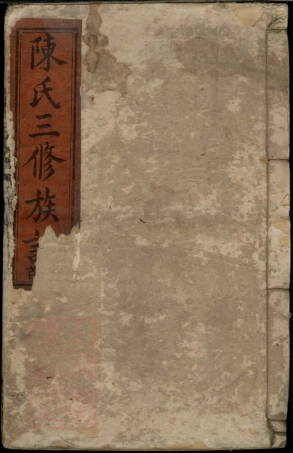 陳氏三修族